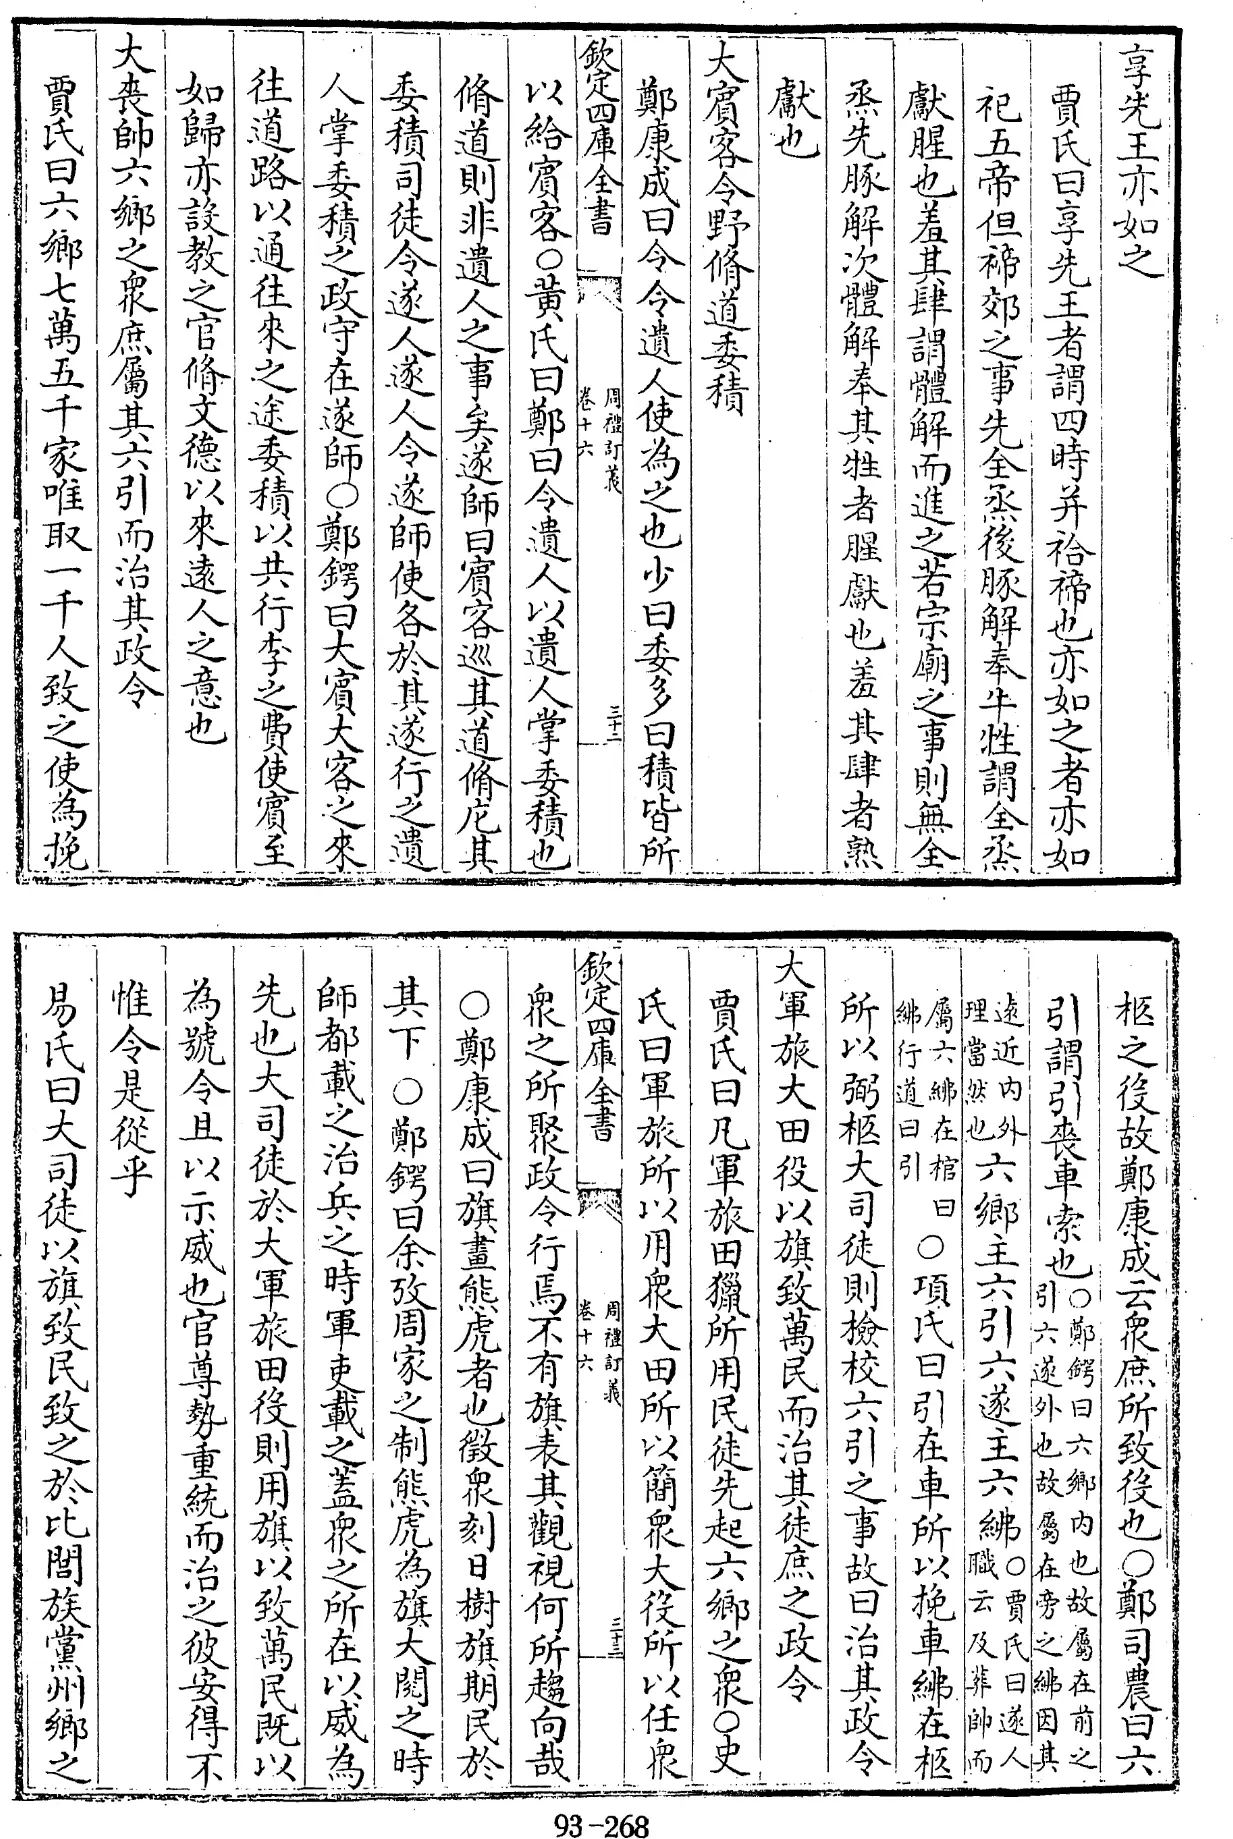 享先王亦如之
賈氏曰享先王者謂四時并祫禘也亦如之者亦如
祀五帝但禘郊之事先全烝後豚解奉牛牲謂全烝
獻腥也羞其肆謂體解而進之若宗廟之事則無全
烝先豚解次體解奉其牲者腥獻也羞其肆者熟
獻也
大賓客令野脩道委積
鄭康成曰令令遺人使為之也少曰委多曰積皆所
欽定四庫全書
周禮訂義
卷十六
三十二
以給賓客〇黃氏曰鄭曰令遺人以遺人掌委積也
脩道則非遺人之事矣遂師曰賓客巡其道脩庀其
委積司徒令遂人遂人令遂師使各於其遂行之遺
人掌委積之政守在遂師〇鄭鍔曰大賓大客之來
往道路以通往來之途委積以共行李之費使賓至
如歸亦設教之官脩文德以來遠人之意也
大喪帥六鄉之衆庶屬其六引而治其政令
賈氏曰六鄉七萬五千家唯取一千人致之使為挽
柩之役故鄭康成云衆庶所致役也〇鄭司農曰六
引謂引喪車索也〇鄭鍔曰六鄉内也故屬在前之
引六遂外也故屬在旁之紼因其
遠近内外
理當然也六鄉主六引六遂主六紼〇賈氏曰遂人
職云及葬帥而
屬六紼在棺曰
紼行道曰引〇項氏曰引在車所以挽車紼在柩
所以弼柩大司徒則檢校六引之事故曰治其政令
大軍旅大田役以旗致萬民而治其徒庶之政令
賈氏曰凡軍旅田獵所用民徒先起六鄉之衆〇史
氏曰軍旅所以用衆大田所以簡衆大役所以任衆
欽定四庫全書
周禮訂義
卷十六
三十三
衆之所聚政令行焉不有旗表其觀視何所趨向哉
〇鄭康成曰旗畫熊虎者也徵衆刻日樹旗期民於
其下〇鄭鍔曰余攷周家之制熊虎為旗大閱之時
師都載之治兵之時軍吏載之蓋衆之所在以威為
先也大司徒於大軍旅田役則用旗以致萬民既以
為號令且以示威也官尊勢重統而治之彼安得不
惟令是從乎
易氏曰大司徒以旗致民致之於比閭族黨州鄉之
93-268